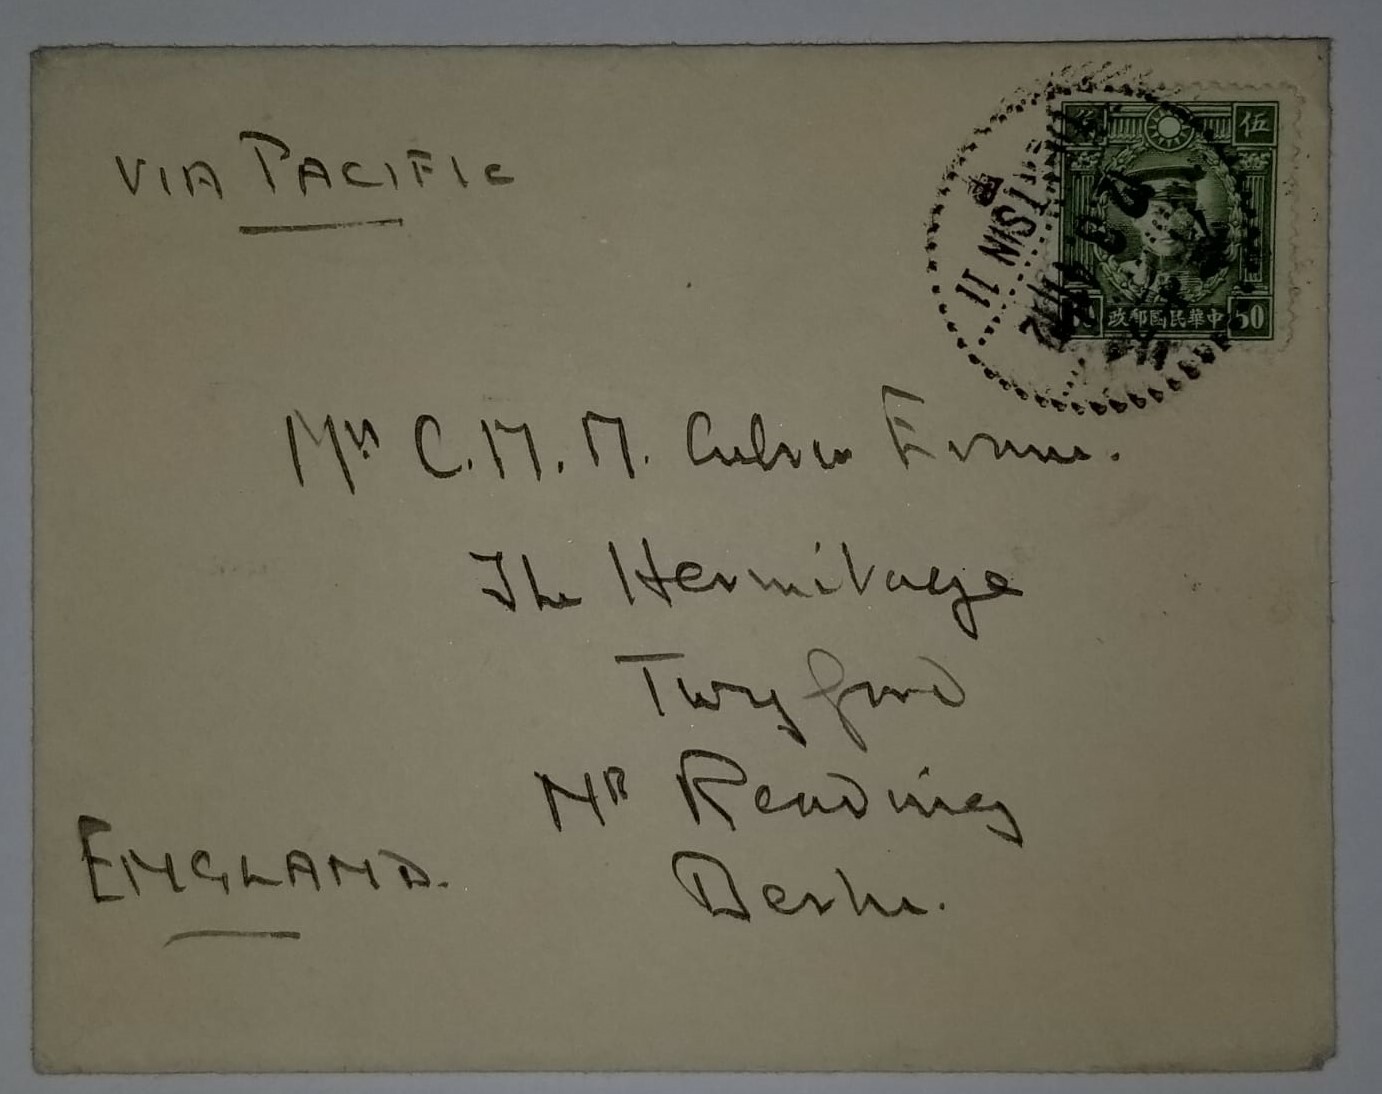 VIA PACIFIC
伍
50 中華民國郵政 50
TIENTSIN 11
Mrs C. M. M. Evans.
The Hermitage
Twyford
Nr Reading
Berks.
ENGLAND.